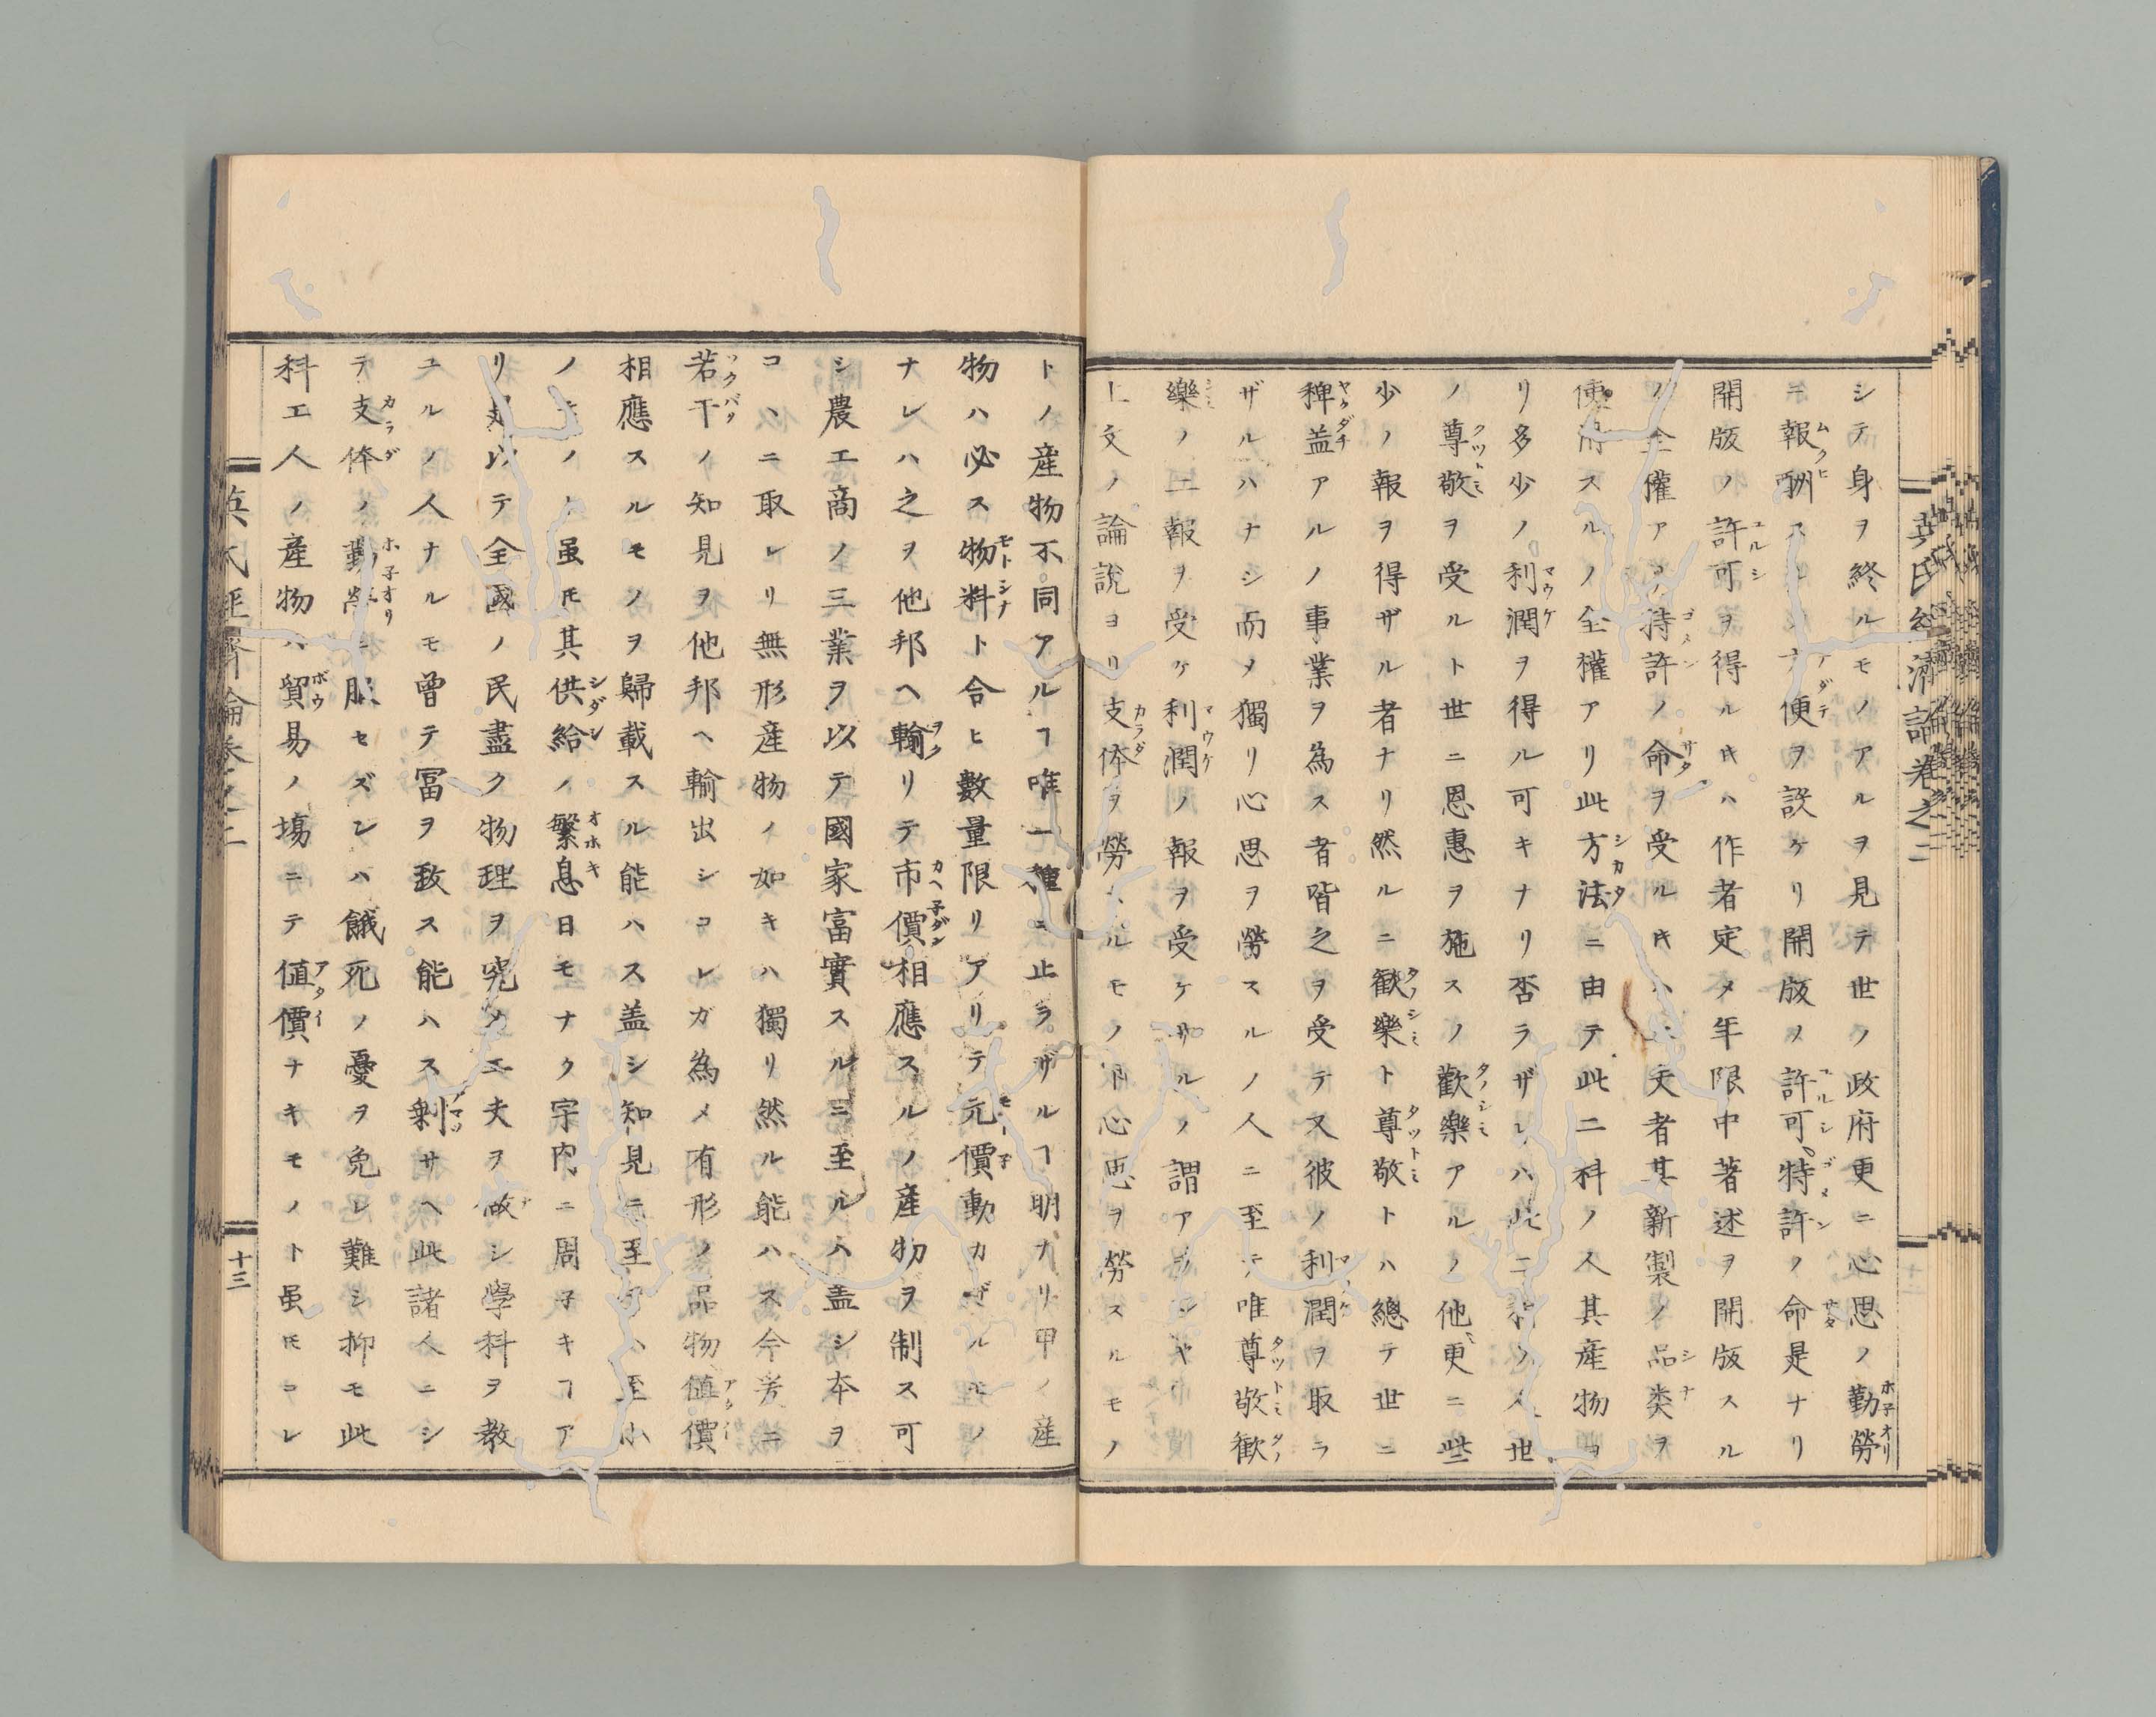 英氏經濟論卷之二
シテ身ヲ終ルモノアルヲ見テ世ノ政府更ニ心思ノ勤勞
ニ報酬スルノ方便ヲ設ケリ開版ノ許可特許ノ命是ナリ
開版ノ許可ヲ得ルキハ作者定メタ年限中著述ヲ開版スル
ノ全權アリ特許ノ命ヲ受ルキハ工夫者其新製ノ品类ヲ
使用スルノ全權アリ此方法ニ由テ此二科ノ人其產物ヨ
リ多少ノ利潤ヲ得ル可キナリ否ラザレハ此二科ノ人世
ノ尊敬ヲ受ルト世ニ恩惠ヲ施スノ歡樂アルノ他更ニ些
少ノ報ヲ得ザル者ナリ然ルニ歡樂ト尊敬トハ總テ世ニ
稗益アルノ事業ヲ為ス者皆之ヲ受テ又彼ノ利潤ヲ取ラ
ザルハナシ而メ獨リ心思ヲ勞スルノ人ニ至テ唯尊敬歡
樂ノ二報ヲ受ケ利潤ノ報ヲ受ケザルノ謂アランヤ
上文ノ論說ヨリ支体ヲ勞スルモノト心思ヲ勞スルモノ
トノ産物不同アルヿ唯一種ニ止ラザルヿ明ナリ甲ノ産
物ハ必ス物料ト合ヒ數量限リアリテ元價動カザルモノ
ナレハ之ヲ他邦ヘ輸リテ市價相應スルノ産物ヲ制ス可
シ農工商ノ三業ヲ以テ國家富實スルニ至ルハ盖シ本ヲ
コヽニ取レリ無形産物ノ如キハ獨リ然ル能ハス今芳ニ
若干ノ知見ヲ他邦ヘ輸出シコレガ為メ有形ノ品物値價
相應スルモノヲ歸載スル能ハス盖シ知見ニ至テハ至小
ノモノト虽モ其供給ノ繁息日モナク宇内ニ周子キヿア
リ是以テ全國ノ民盡ク物理ヲ究メ工夫ヲ做シ學科ヲ教
ユルノ人ナルモ曾テ冨ヲ致ス能ハス剰サヘ此諸人ニシ
テ支体ノ勤勞ニ服セズンハ餓死ノ憂ヲ免レ難シ抑モ此
科工人ノ産物ハ貿易ノ塲ニテ値價ナキモノト虽モコレ
英氏經濟論卷之二
十三